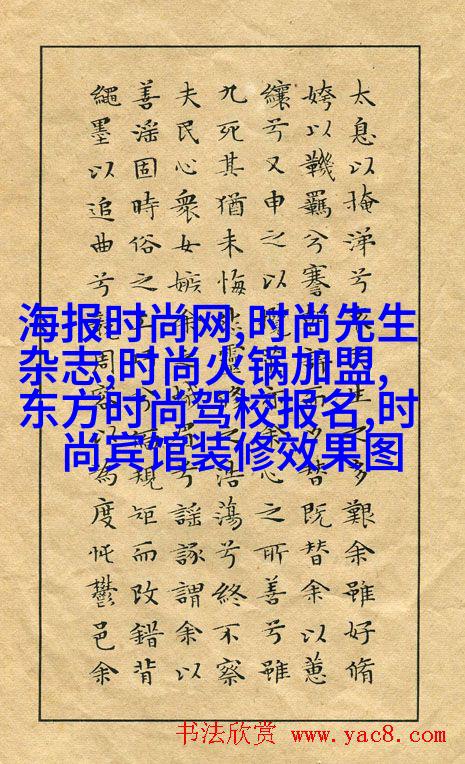 太息以掩涕兮生之多艱余雖好脩
姱以鞿羈兮謇而夕替既替余以蕙
纕兮又申之以余心之所善兮雖
九死其猶未悔怨靈脩之浩蕩兮終不察
夫民心衆女嫉余兮謠諑謂余以
善淫固時俗之兮規矩而改錯背
繩墨以追曲兮周容以為度忳鬱邑余
海报时尚网,时尚先生
杂志,时尚火锅加盟,
东方时尚驾校报名,时
尚宾馆装修效果图
书法欣赏 www.yac8.com